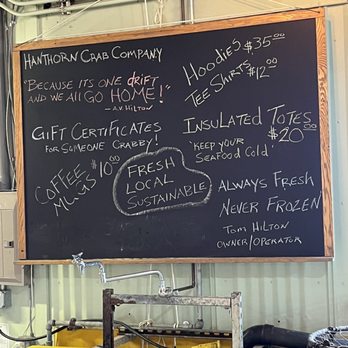 HANTHORN CRAB COMPANY
"BECAUSE ITS ONE drift
AND WE All GO HOME!"
- A.V. HILTON
HOODIES $35.00
TEE SHIRTS $12.00
GIFT CERTIFICATES
FOR SOMEONE CRABBY!
INSULATED TOTES
$20.00
"KEEP YOUR
SEAFOOD COLD"
COFFEE
MUGS
$10.00
FRESH
LOCAL
SUSTAINABLE
ALWAYS FRESH
NEVER FROZEN
TOM HILTON
OWNER/OPERATOR